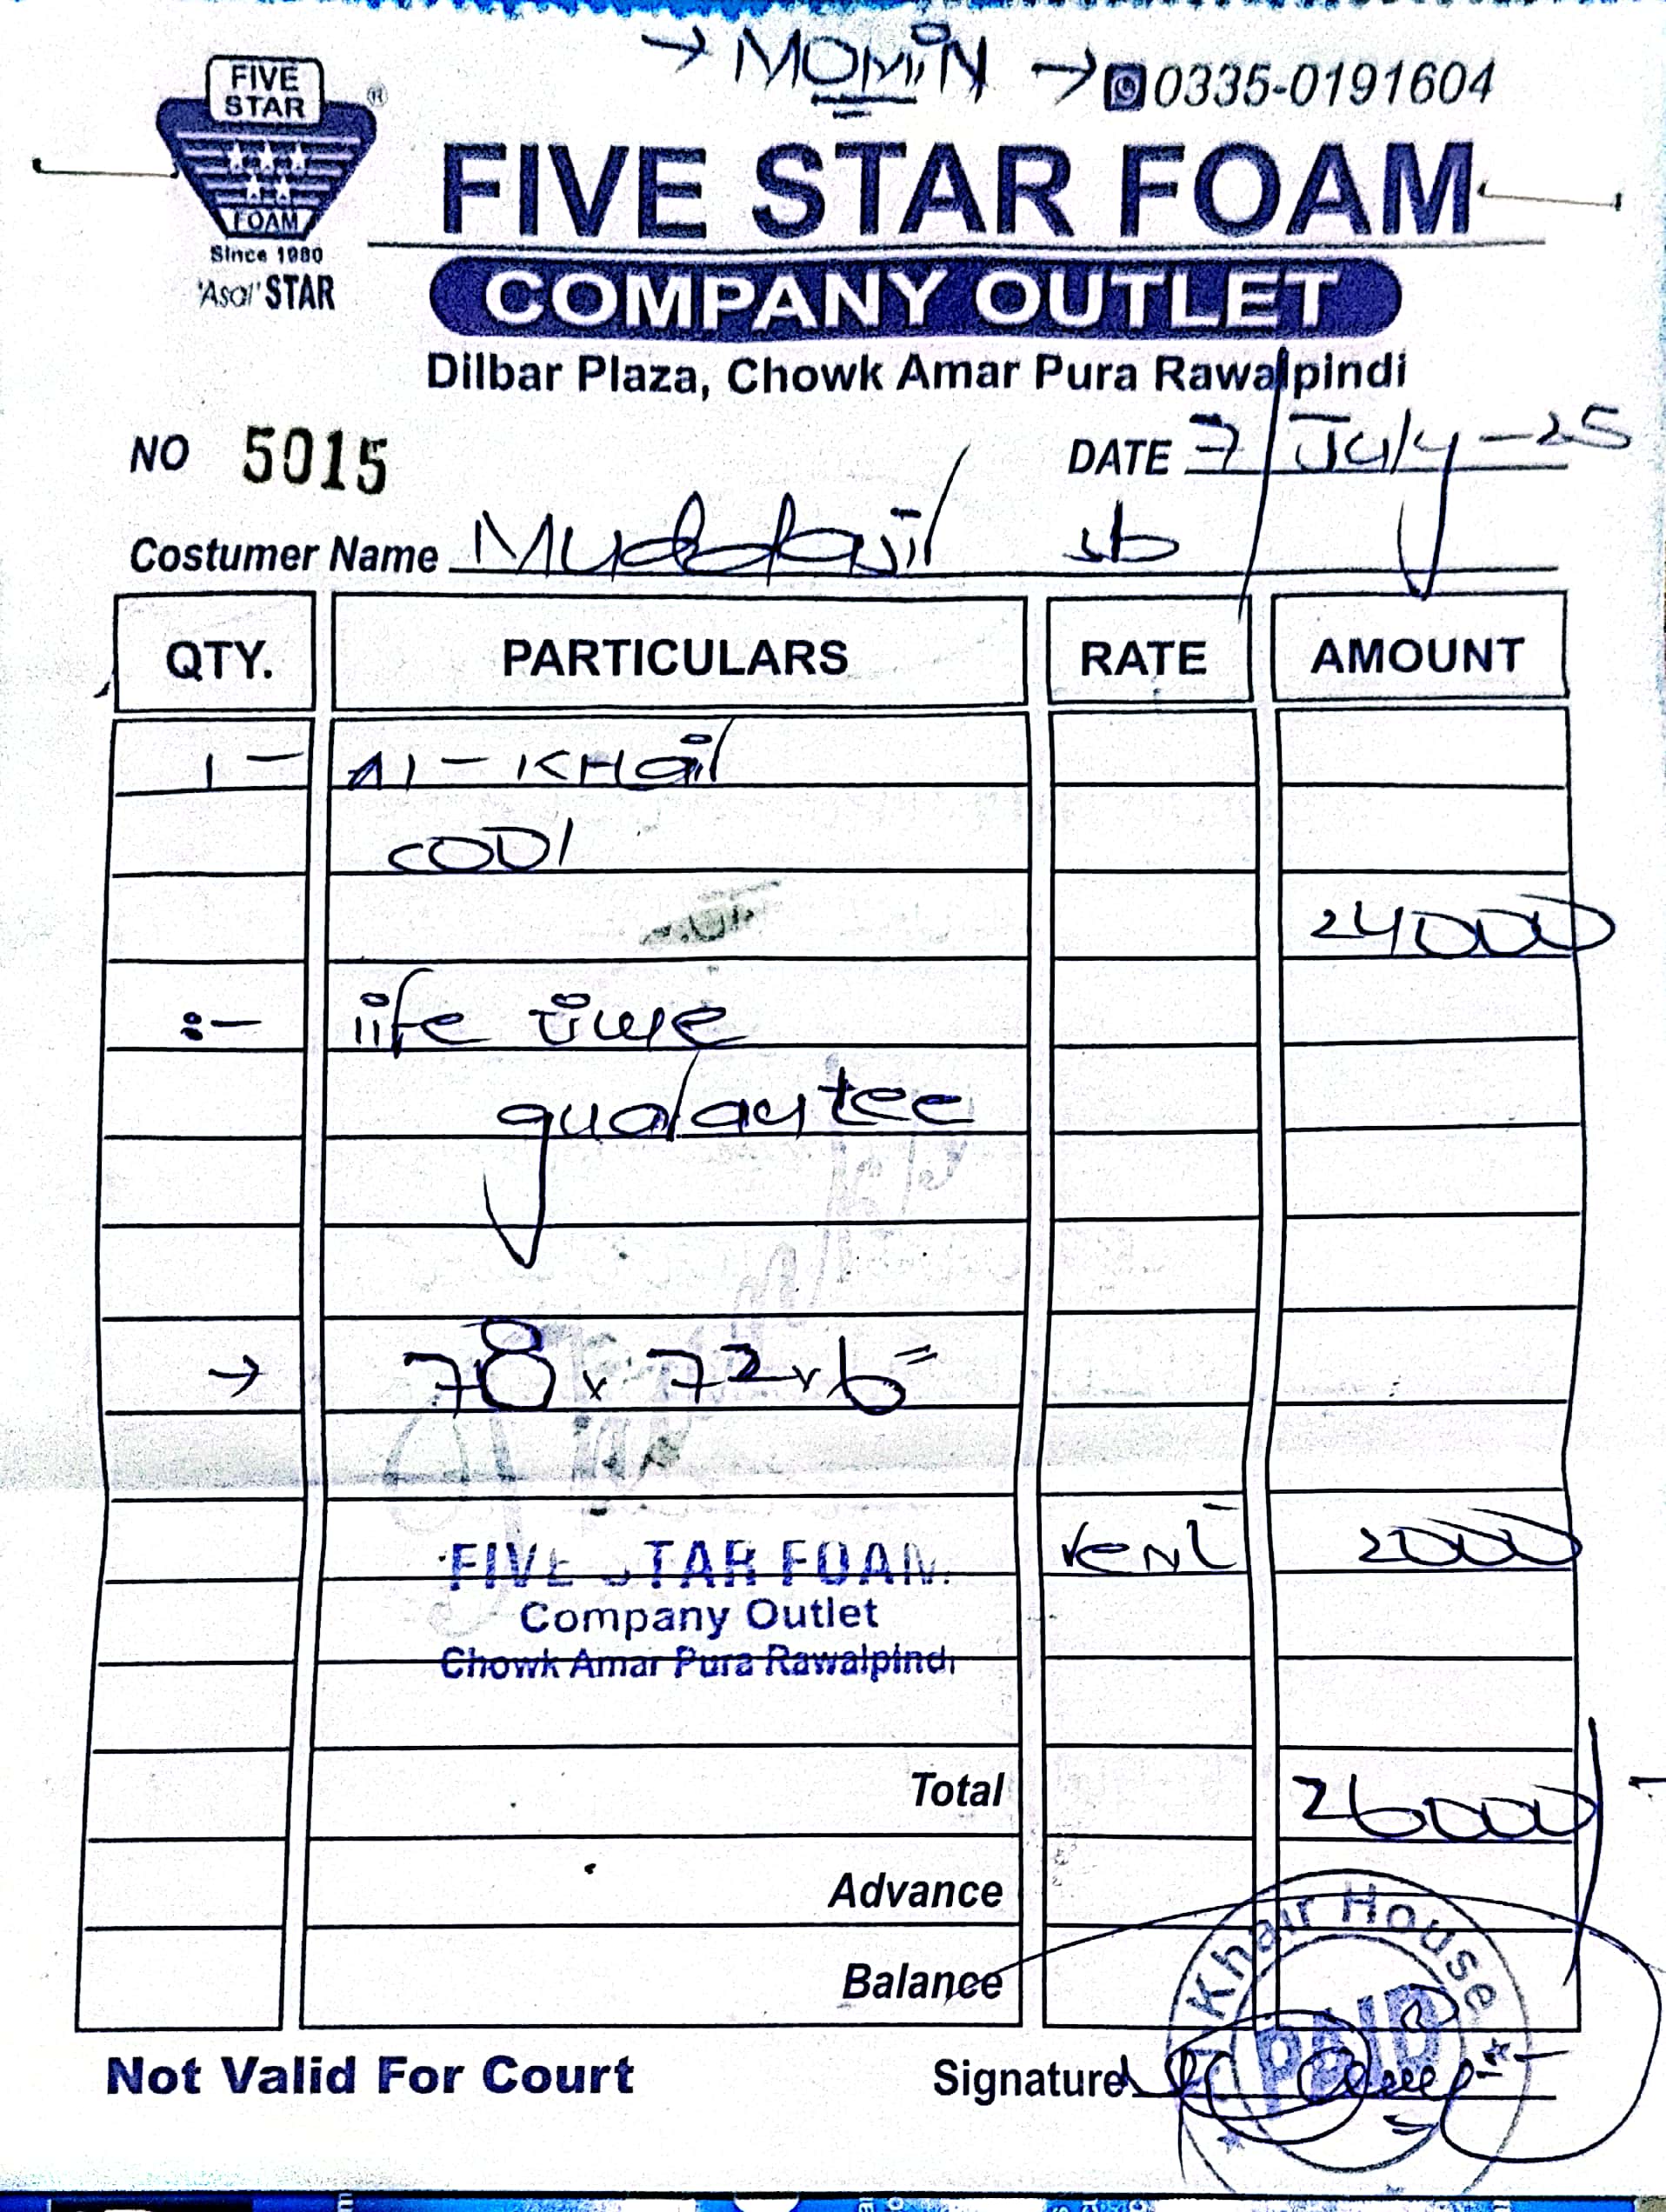 → MOMiN → 0335-0191604
FIVE STAR FOAM
Since 1980
'Asal' STAR
®
FIVE STAR FOAM
COMPANY OUTLET
Dilbar Plaza, Chowk Amar Pura Rawalpindi
NO 5015
DATE 7/July-25
Costumer Name Muddasir sb
QTY. PARTICULARS RATE AMOUNT
1 - Al-KHair
COOl
24000
:- life time
guarantee
→ 78 x 72 x 6"
rent 2000
FIVE STAR FOAM
Company Outlet
Chowk Amar Pura Rawalpindi
Total 26000/-
Advance
Balance
Khair House
PAID
Not Valid For Court
Signature